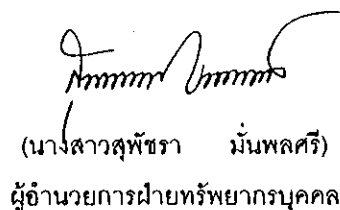 (นางสาวสุพัชรา มั่นพลศรี)
ผู้อำนวยการฝ่ายทรัพยากรบุคคล